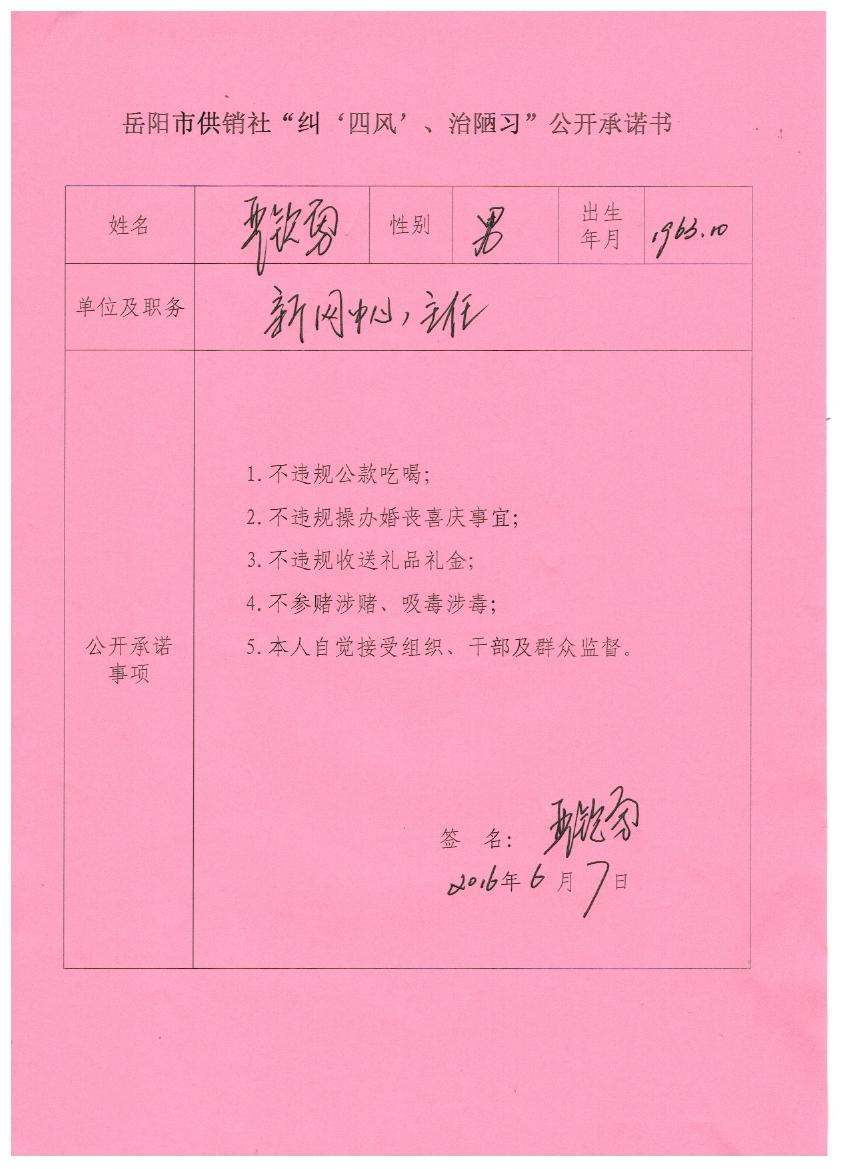 岳阳市供销社“纠‘四风’、治陋习”公开承诺书
姓名 性别 男 出生年月 1963.10
单位及职务 新网中心,主任
公开承诺事项
1. 不违规公款吃喝;
2. 不违规操办婚丧喜庆事宜;
3. 不违规收送礼品礼金;
4. 不参赌涉赌、吸毒涉毒;
5. 本人自觉接受组织、干部及群众监督。
签 名:
2016年6月7日